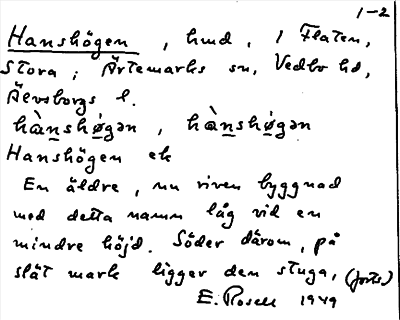 1-2
Hanshögen, hmd, i Flaten,
Stora; Ärtemarks sn, Vedbo hd,
Älvsborgs l.
hànshǿgən, hànshǿgən
Hanshögen ek
En äldre, nu riven byggnad
med detta namn låg vid en
mindre höjd. Söder därom, på
slät mark ligger den stuga, (forts)
E. Rosell 1949